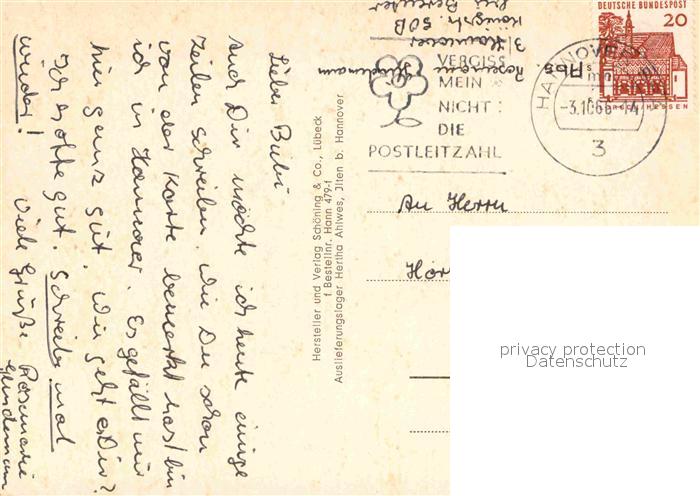 Lieber Bubi
Auch Dir möchte ich heute einige
Zeilen schreiben. Wie Du schon
von der Karte bemerkt hast bin
ich in Hannover. Es gefällt mir
hier ganz gut. Wie geht es Dir?
Ich hoffe gut. Schreibe mal
wieder!
Viele Grüße Rosemarie
Hersteller und Verlag Schöning & Co., Lübeck
f Bestellnr. Hann 479-f
Auslieferungslager Hertha Ahlwes, Ilten b. Hannover
3 Hannover
Königstr. 50B
VERGISS
MEIN
NICHT:
DIE
POSTLEITZAHL
HANNOVER
-3.10.66-14
3
DEUTSCHE BUNDESPOST
20
LORSCH/HESSEN
An Herrn
privacy protection
Datenschutz